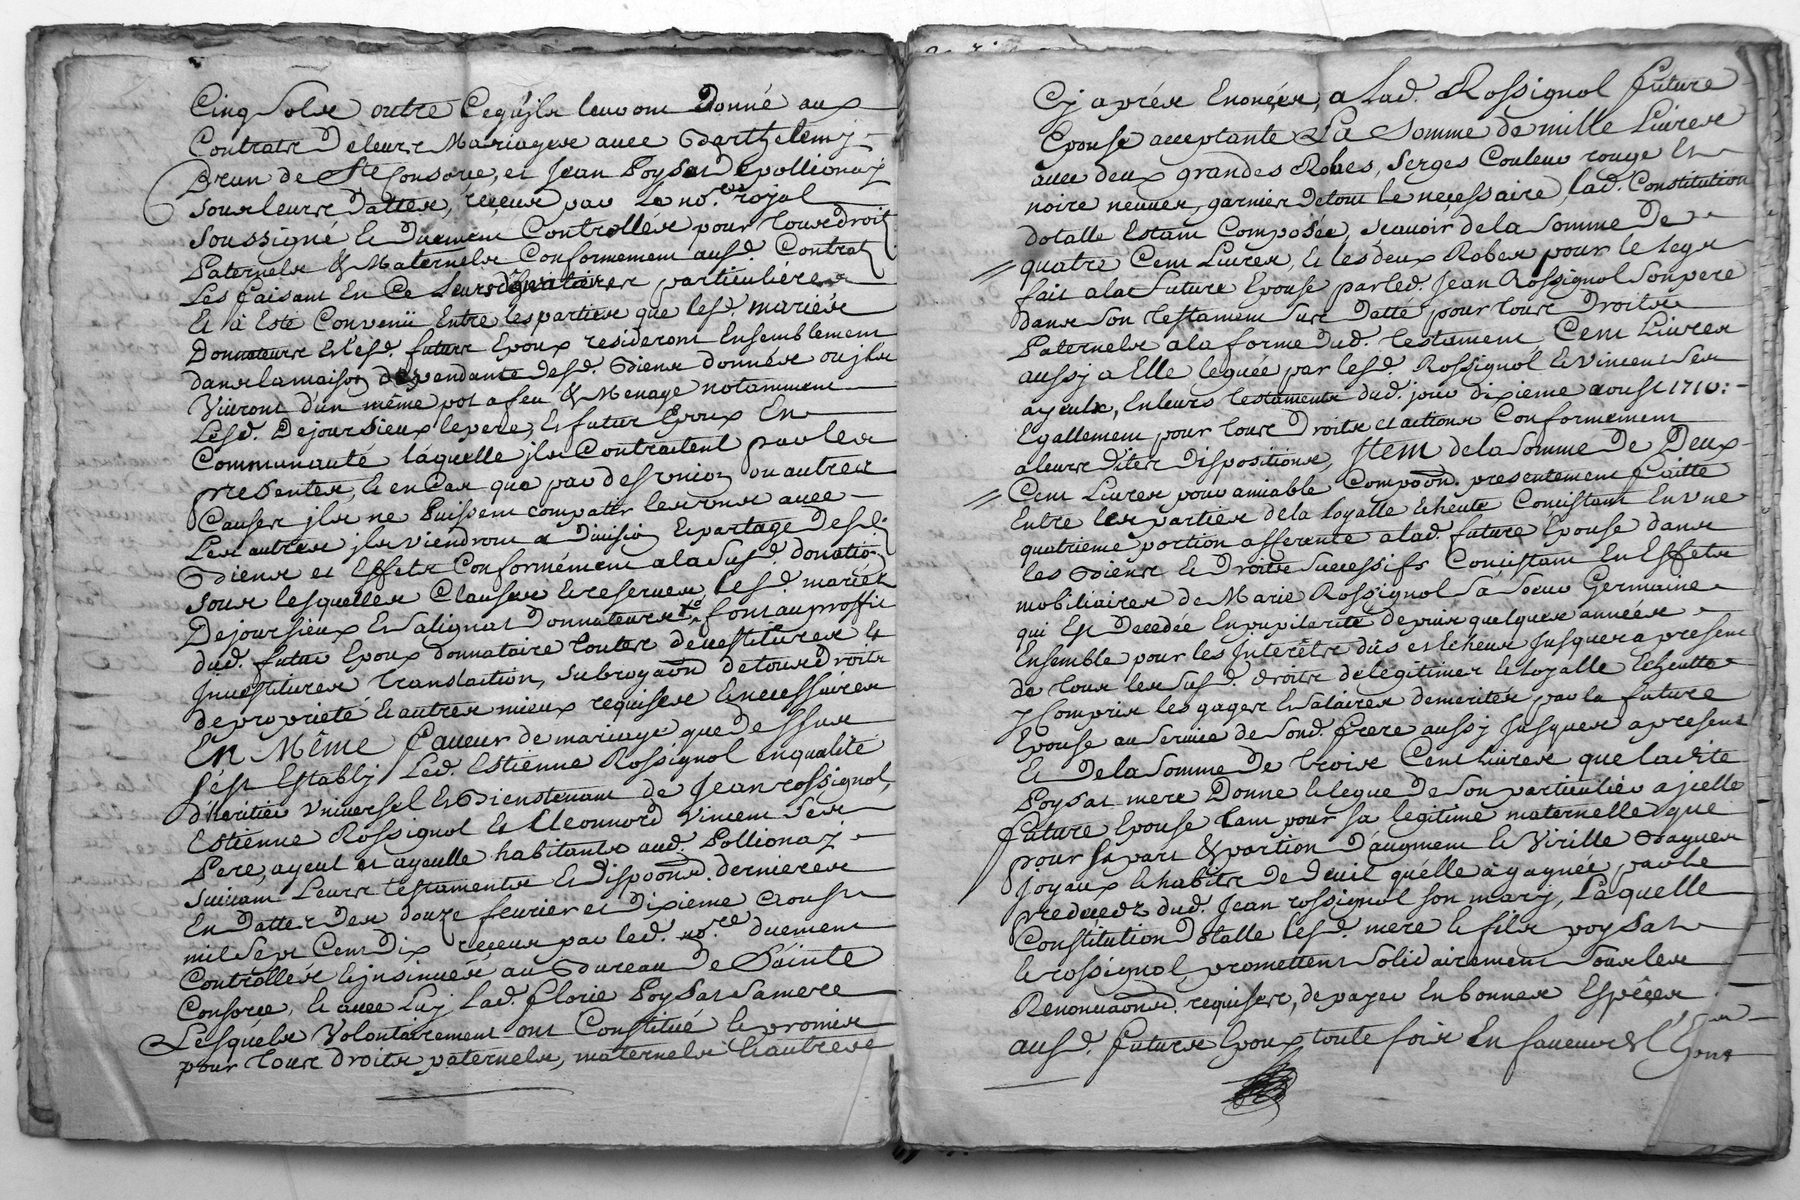 Cinq Sols outre Cequ'ils leur ont Donné aux
Contrats De leurs Mariages avec Barthelemy
Brun de Ste Consorce, et Jean Poysat De pollionay
sous leurs Dattes, reçeus par Le no.re royal
soussigné & Duement Controllés pour tous droits
Paternels & Maternels Conformement ausd. Contrats
Les faisant En Ce Leurs légataires particulières
Et à Esté Convenü Entre les parties que lesd. mariés
Donnateurs Et lesd. futurs Epoux resideront Ensemblement
dans la maison dependante desd. Biens donnés ou jls
Vivront d'un même pot a feu & Menage notamment
Lesd. Dejoursieux le pere, & futur Epoux En
Communauté láquelle jls Contractent par les
presentes, & en Cas que par desunion ou autres
Causes jls ne Puissent compatir les uns avec
Les autres jls viendront a Division & partage Desd.
Biens et Effets Conformément a la susd. donation
sous lesquelles Clauses & reserves, lesd. mariés
Dejoursieux & Salignat Donnateurs font au proffit
dud. futur Epoux donnataire toutes devestitures &
Jnvestitures translaction, subrogaõn de tous Droits
de proprieté & autres mieux requises & necessaires
En Même faveur de mariage que Dessus
s'est Establÿ Led. Estienne Rossignol en qualité
d'heritier Universel & Bienstenant de Jean rossignol,
Estienne Rossignol & Leonnord Vincent Ses
Pere, ayeul et ayeulle habitants aud. Pollionay
suivant Leurs testaments & Dispoõns. dernieres
En Dattes Des douze fevrier et Dixieme Aoust
mil Sept Cent Dix reçeus par led. no.re duement
Controllés & jnsinués au Bureau De Sainte
Consorce, & avec Luy Lad. florie Poysat Sa mere
Lesquels Volontairement ont Constitué & promis
pour tous droits paternels, maternels & autres
Cy après Enonçés, a Lad. Rossignol future
Epouse acceptante La Somme de mille Livres
avec deux grandes Robes, Serges Couleur rouge &
noire neuves, garnies De tout le necessaire, lad. Constitution
dotalle Estant Composée, sçavoir de la Somme De
quatre Cent Livres, & les deux Robes pour le legs
fait a la future Epouse par led. Jean Rossignol Son pere
dans Son testament Sus Datté pour tous Droits
Paternels a la forme dud. testament, Cent Livres
aussy a Elle leguée par lesd. Rossignol & Vincent Ses
ayeuls, En leurs testaments dud. jour dixieme aoust 1710:
Egallement pour tous Droits et actions Conformement
a leurs dites Dispositions, Jtem de la Somme De Deux
Cent Livres pour amiable Compoõn. presentement faitte
Entre les parties de la loyalle Echeute Concistant En une
quatrieme portion afferante a lad. future Epouse dans
les Biens & Droits Successifs Concistant En Effets
mobiliaires de Marie Rossignol Sa Soeur Germaine
qui Est Decedée En pupilarité depuis quelques années
Ensemble pour les Jnterêts dûs et Echeus Jusques a present
de tous les susd. droits de legitimes & loyalle Echeutte
y Compris les gages & Salaires demerités par la future
Epouse au Service de Sond. frere aussy Jusques a present
& De la Somme De trois Cent Livres que ladite
Poysat mere Donne & legue De Son particulier a jcelle
future Epouse tant pour sa legitime maternelle que
pour sa part & portion D'augment & Virille Bagues
Joyaux & habits De Deuil qu'elle à gagnée par le
predecedz dud. Jean rossignol son mary, Laquelle
Constitution Dotalle lesd. mere & fils poysat
& rossignol promettent Solidairement Sous les
Renonciaõns. requises, de payer En bonnes Espéçes
ausd. futurs Epoux toute fois En faveur &